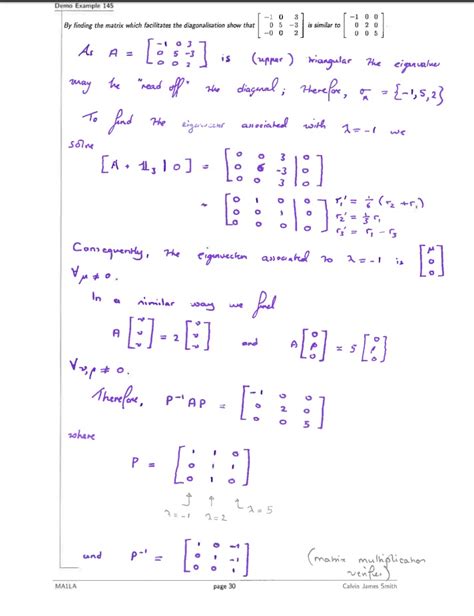 Demo Example 145
By finding the matrix which facilitates the diagonalisation show that [ -1 0 3 ; 0 5 -3 ; -0 0 2 ] is similar to [ -1 0 0 ; 0 2 0 ; 0 0 5 ]
As A = [ -1 0 3 ; 0 5 -3 ; 0 0 2 ] is (upper) triangular the eigenvalues
may be "read off" the diagonal; therefore, σ_A = {-1, 5, 2}
To find the eigenvector associated with λ=-1 we
solve
[A + 𝟙₃ | 0] = [ 0 0 3 | 0 ; 0 6 -3 | 0 ; 0 0 3 | 0 ]
~ [ 0 1 0 | 0 ; 0 0 1 | 0 ; 0 0 0 | 0 ] r₁' = 1/6 (r₂ + r₁) r₂' = 1/3 r₁ r₃' = r₁ - r₃
Consequently, the eigenvector associated to λ=-1 is [ μ ; 0 ; 0 ]
∀ μ ≠ 0.
In a similar way we find
A [ ν ; ν ; ν ] = 2 [ ν ; ν ; ν ] and A [ 0 ; ρ ; 0 ] = 5 [ 0 ; ρ ; 0 ]
∀ ν, ρ ≠ 0.
Therefore, P⁻¹AP = [ -1 0 0 ; 0 2 0 ; 0 0 5 ]
where
P = [ 1 1 0 ; 0 1 1 ; 0 1 0 ]
λ=-1 λ=2 λ=5
and P⁻¹ = [ 1 0 -1 ; 0 0 1 ; 0 1 -1 ] (matrix multiplication
verifies)
MA1LA page 30 Calvin James Smith